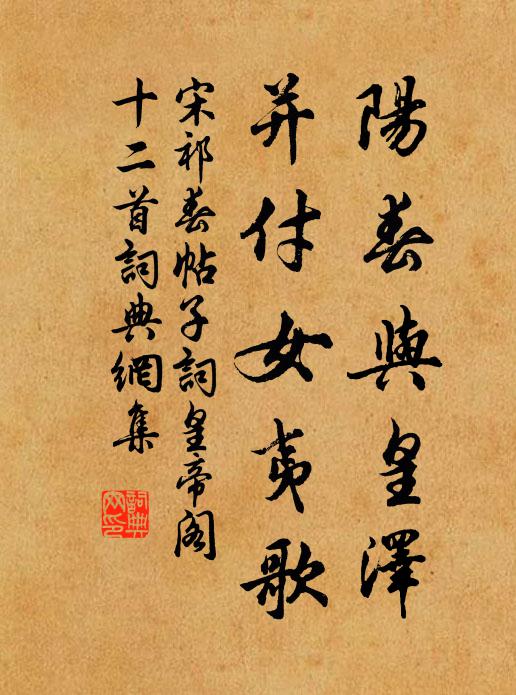 陽春與皇澤
并付女夷歌
宋祁春帖子詞皇帝閣
十二首詞典網集
詞典网印